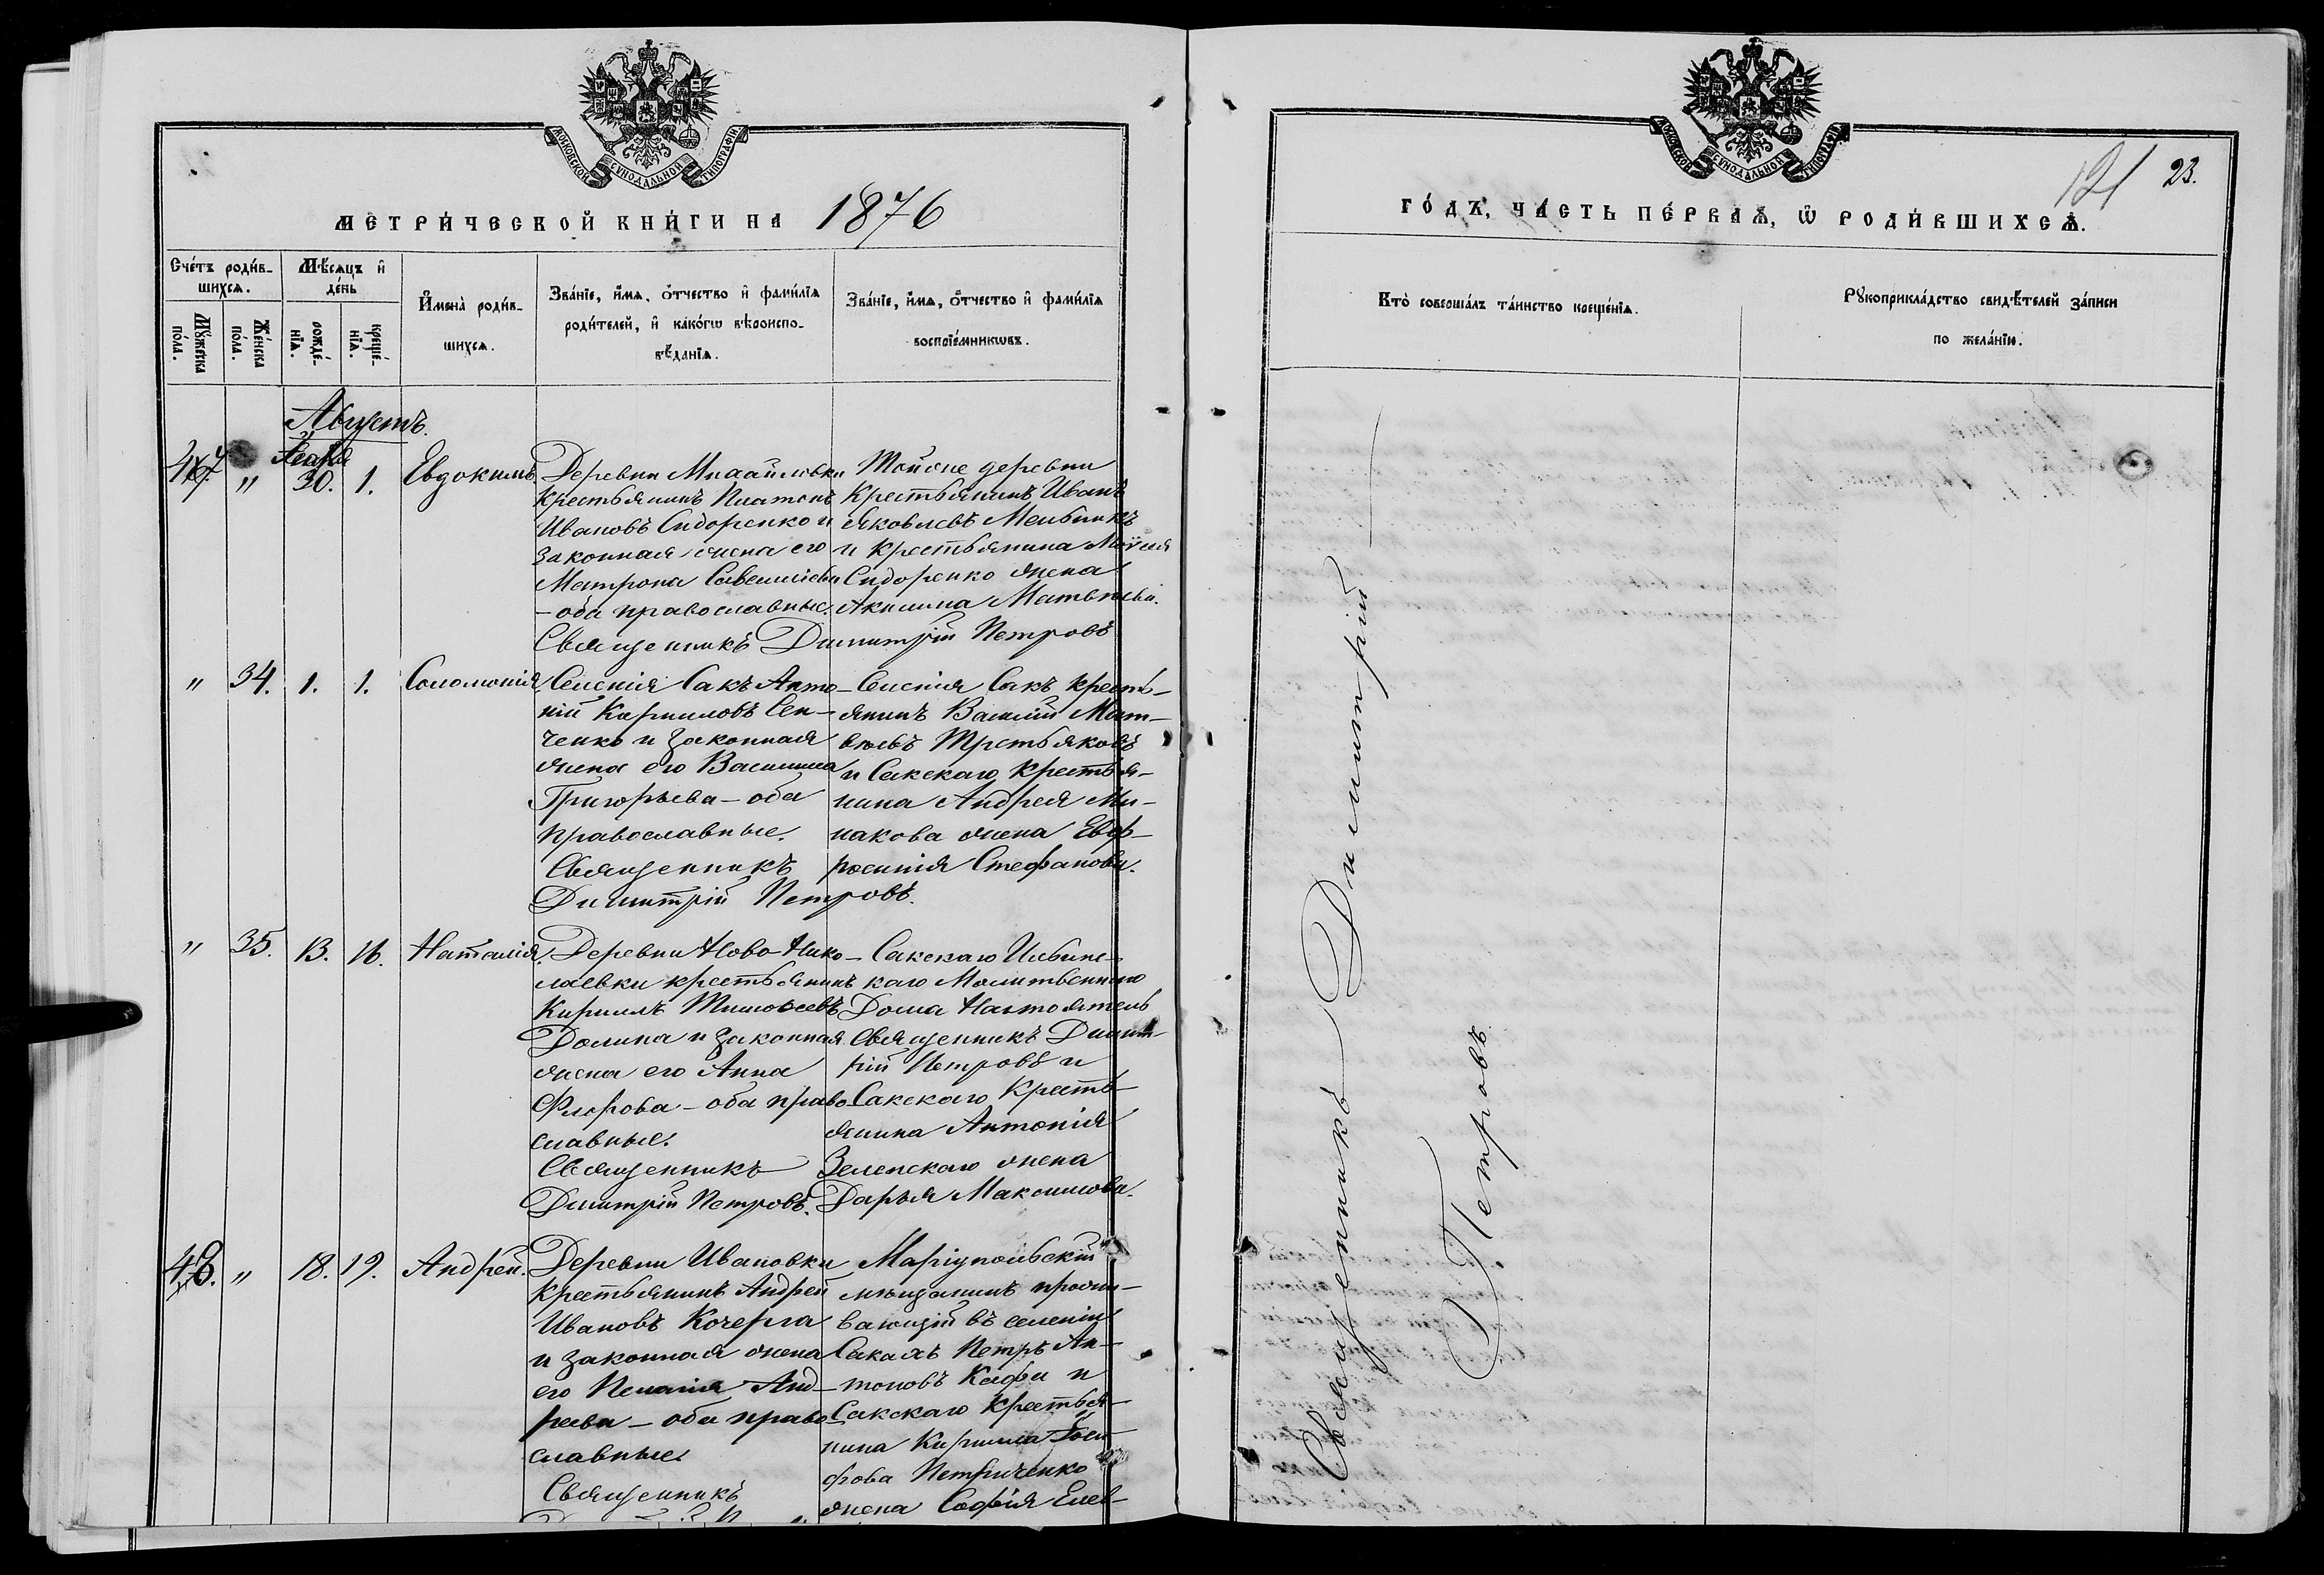 МОСКОВСКОЙ СѴНОДАЛЬНОЙ ТИПОГРАФІИ
МЕТРИ́ЧЕСКОЙ КНИ́ГИ НА 1876
Сче́тъ роди́в-
шихсѧ.
Мꙋ́жеска
по́ла.
Же́нска
по́ла.
Мѣ́сѧцъ и҆
де́нь
рожде́-
нїѧ.
креще́-
нїѧ.
И҆мена̀ роди́в-
шихсѧ.
Зва́нїе, и҆́мѧ, ѻ҆́тчество и҆ фами́лїѧ
роди́телей, и҆ како́гѡ вѣроиспо-
вѣ́данїѧ.
Зва́нїе, и҆́мѧ, ѻ҆́тчество и҆ фами́лїѧ
воспрїе́мникѡвъ.
Августъ.
47. " 30. 1. Евдокимъ.
Деревни Михайловки
крестьянинъ Платонъ
Ивановъ Сидоренко и
законная жена его
Матрона Савелиева
- оба православные.
Тойже деревни
крестьянинъ Иванъ
Яковлевъ Мельникъ
и крестьянина Моѵсея
Сидоренко жена
Акилина Матвѣева.
Священникъ Димитрій Петровъ
" 34. 1. 1. Соломонія
Селенія Сакъ Анто-
ній Кирилловъ Сен-
ченко и законная
жена его Василиса
Григорьева - оба
православные.
Священникъ
Димитрій Петровъ.
Селенія Сакъ кресть-
янинъ Василій Мат-
вѣевъ Третьяковъ
и Сакскаго крестья-
нина Андрея Ми-
накова жена Евф-
росинія Стефанова.
" 35. 13. 16. Наталія.
Деревни Ново-Нико-
лаевки крестьянинъ
Кириллъ Тимоѳеевъ
Долина и законная
жена его Анна
Флорова - оба право-
славные.
Священникъ
Димитрій Петровъ.
Сакскаго Ильинс-
каго Молитвеннаго
Дома Настоятель
Священникъ Димит-
рій Петровъ и
Сакскаго кресть-
янина Антонія
Зеленскаго жена
Дарья Максимова.
48. " 18. 19. Андрей.
Деревни Ивановки
крестьянинъ Андрей
Ивановъ Кочерга
и законная жена
его Пелагія Анд-
реева - оба право-
славные.
Священникъ
Маріупольскій
мѣщанинъ прожи-
вающій въ селеніи
Сакахъ Петръ Ан-
тоновъ Кафи и
Сакскаго крестья-
нина Кирилла Іоси-
фова Петриченко
жена Софія Елев-
МОСКОВСКОЙ СѴНОДАЛЬНОЙ ТИПОГРАФІИ
121 23.
ГО́ДЪ, ЧА́СТЬ ПЕ́РВАѦ, Ѡ҆ РОДИ́ВШИХСѦ.
Кто̀ соверша́лъ та́инство креще́нїѧ.
Рꙋкоприкла́дство свидѣ́телей за́писи
по жела́нїю.
Священникъ Димитрій
Петровъ